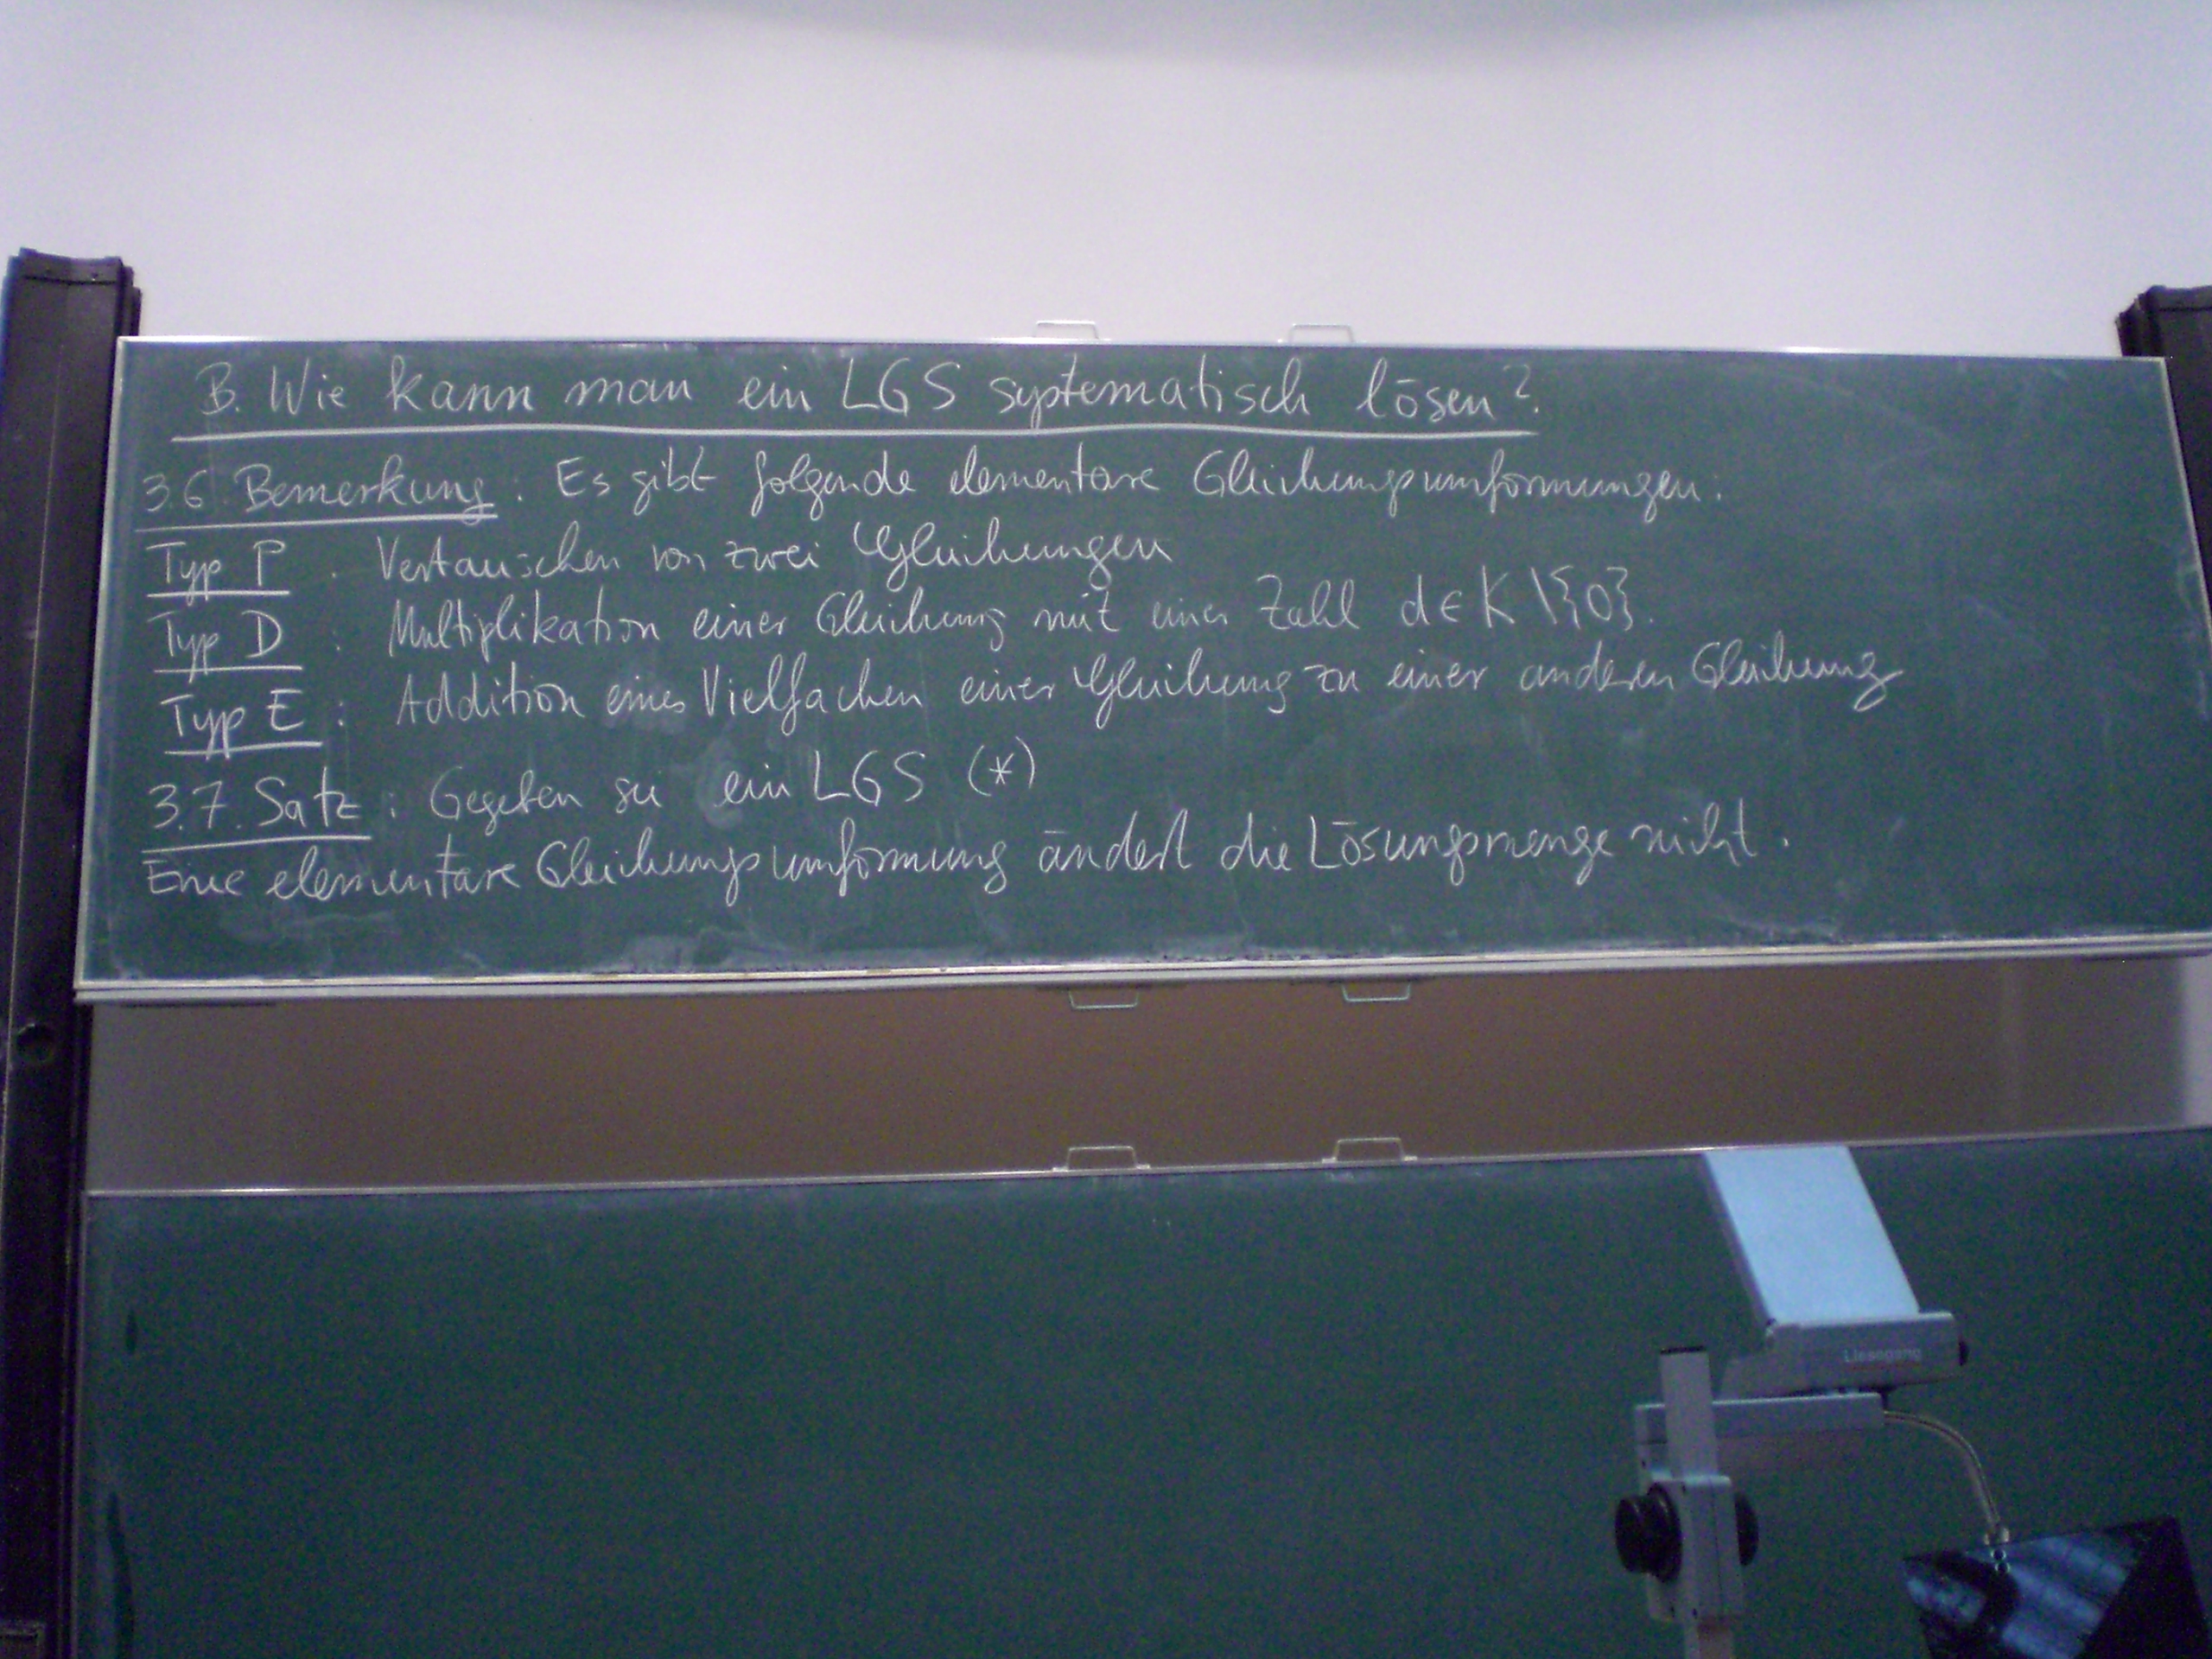 B. Wie kann man ein LGS systematisch lösen?
3.6. Bemerkung: Es gibt folgende elementare Gleichungsumformungen:
Typ P: Vertauschen von zwei Gleichungen
Typ D: Multiplikation einer Gleichung mit einer Zahl d ∈ K \ {0}.
Typ E: Addition eines Vielfachen einer Gleichung zu einer anderen Gleichung
3.7. Satz: Gegeben sei ein LGS (*)
Eine elementare Gleichungsumformung ändert die Lösungsmenge nicht.
Liesegang